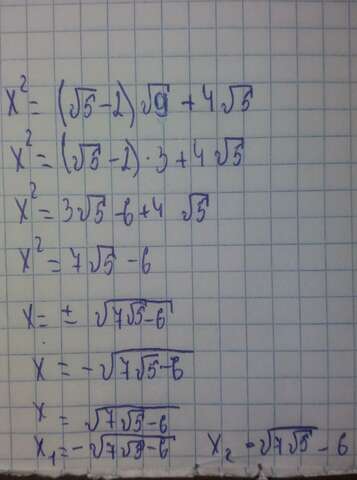 x² = (√5 - 2) √9 + 4√5
x² = (√5 - 2) · 3 + 4√5
x² = 3√5 - 6 + 4 √5
x² = 7√5 - 6
x = ± √(7√5 - 6)
x = - √(7√5 - 6)
x = √(7√5 - 6)
x₁ = - √(7√5 - 6) x₂ = √(7√5) - 6